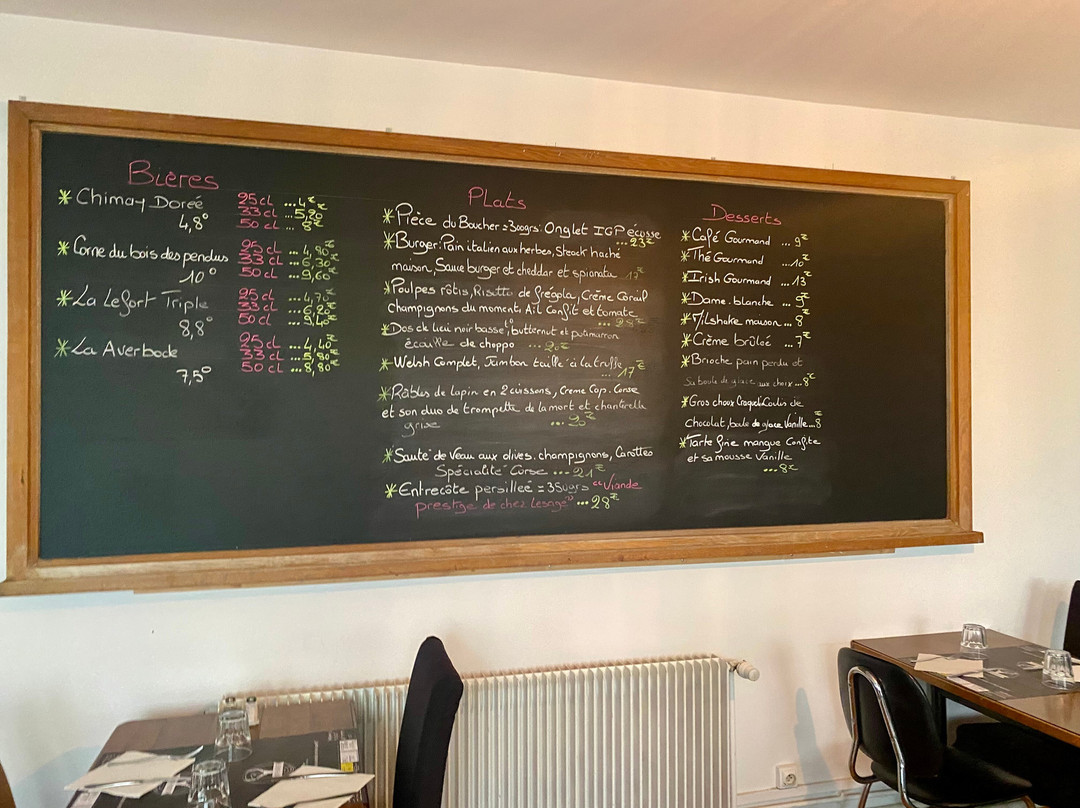 Bières
* Chimay Doreé 25 cl ...4€
4,8° 33 cl ...5,20€
50 cl ... 8€
* Corne du bois des pendus 25 cl ... 4,80€
10° 33 cl ... 6,30€
50 cl ... 9,60€
* La Lefort Triple 25 cl ... 4,70€
8,8° 33 cl ... 6,20€
50 cl ... 9,40€
* La Averbode 25 cl ... 4,40€
7,5° 33 cl ... 5,80€
50 cl ... 8,80€
Plats
* Pièce du Boucher = 300grs: Onglet IGP écosse
... 23€
* Burger: Pain italien aux herbes, Steack haché
maison, Sauce burger et cheddar et spianata 17€
* Poulpes rôtis, Risotto de frégola, Crème Corail
champignons du moment, Ail Confit et tomate
... 28€
* Dos de lieu noir basse t°, butternut et potimarron
écaille de choppo ... 20€
* Welsh Complet, Jambon taillé à la truffe
... 17€
* Râbles de lapin en 2 cuissons, Creme Cap. Corse
et son duo de trompette de la mort et chanterelle
grise ... 20€
* Sauté de Veau aux olives. champignons, Carottes
Spécialité Corse ... 21€
* Entrecôte persilleé = 350grs "Viande
prestige de chez Lesage" ... 28€
Desserts
* Café Gourmand ... 9€
* Thé Gourmand ...10€
* Irish Gourmand ... 13€
* Dame. blanche ... 9€
* Milshake maison ... 8€
* Crème brûlée ... 7€
* Brioche pain perdu et
sa boule de glace aux choix ... 8€
* Gros choux Craquelin Coulis de
chocolat, boule de glace Vanille...8€
* Tarte fine mangue Confite
et sa mousse Vanille
... 8€